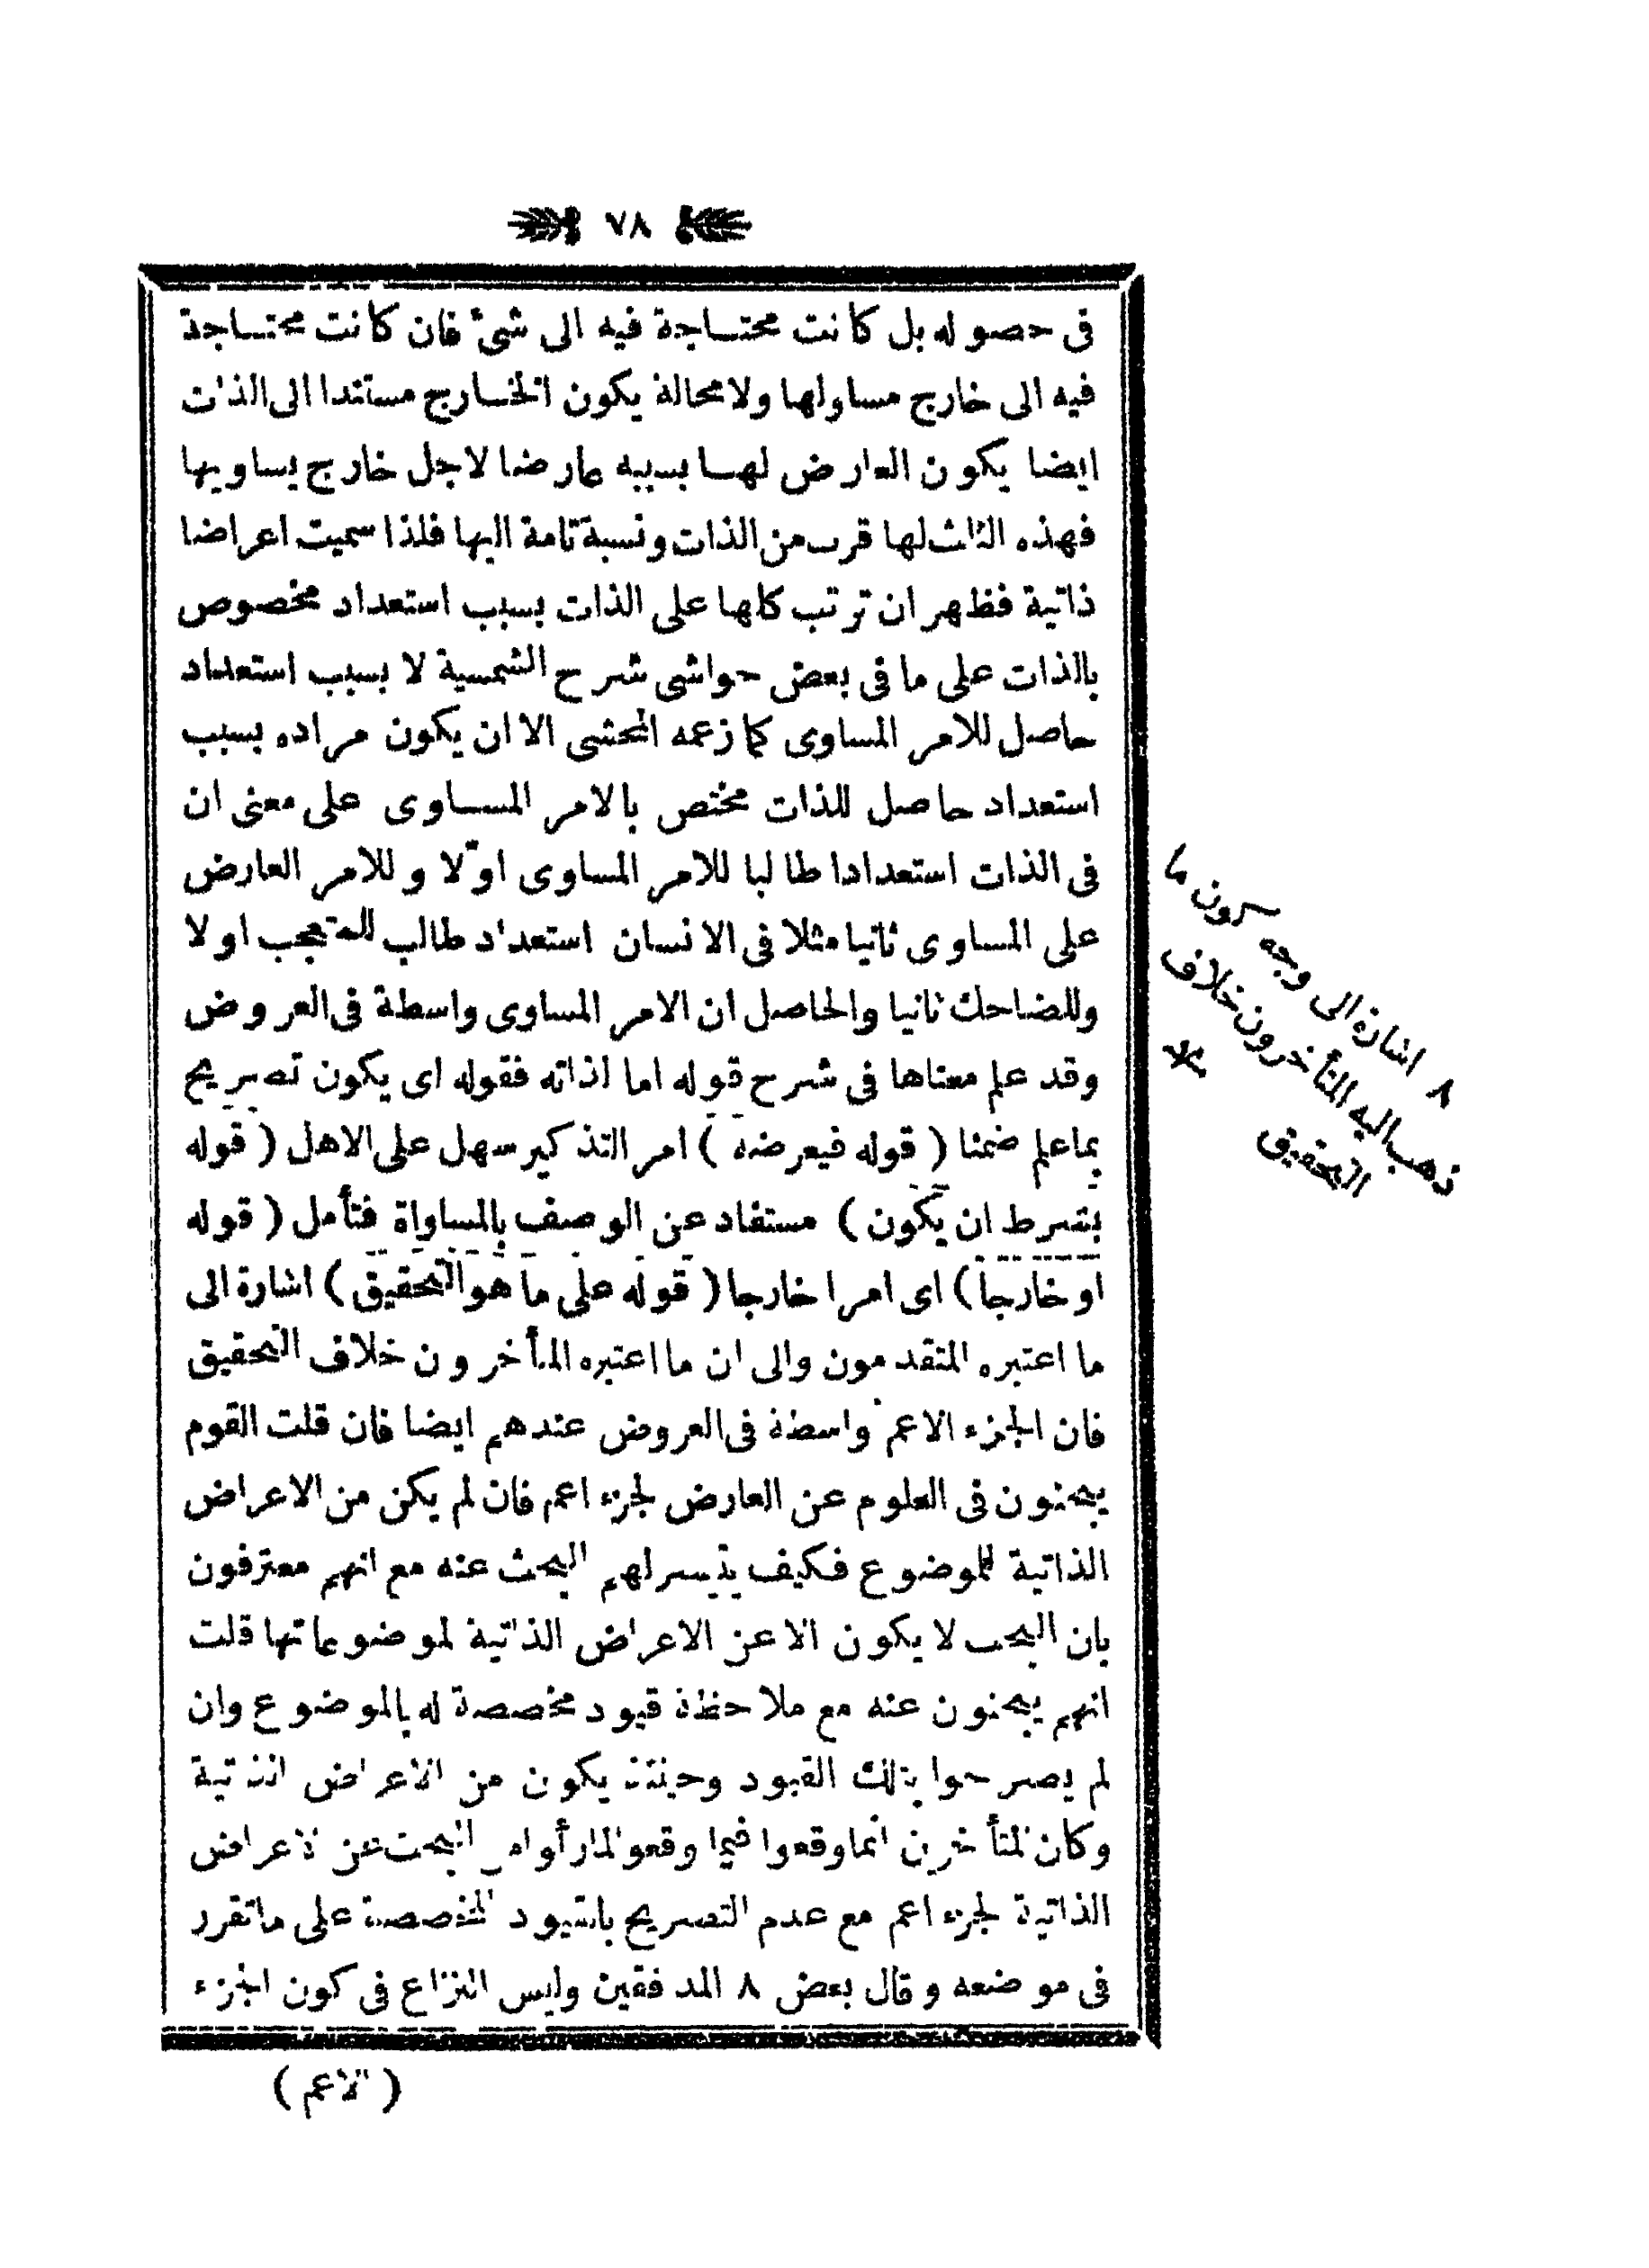 ٧٨
فى حصوله بل كانت محتاجة فيه الى شئ فان كانت محتاجة
فيه الى خارج مساولها ولامحالة يكون الخارج مستندا الى الذات
ايضا يكون العارض لها بسببه عارضا لاجل خارج يساويها
فهذه الثلث لها قرب من الذات ونسبة تامة اليها فلذا سميت اعراضا
ذاتية فظهر ان ترتب كلها على الذات بسبب استعداد مخصوص
بالذات على ما فى بعض حواشى شرح الشمسية لا بسبب استعداد
حاصل للامر المساوى كما زعمه المحشى الا ان يكون مراده بسبب
استعداد حاصل للذات مختص بالامر المساوى على معنى ان
فى الذات استعدادا طالبا للامر المساوى اوّلا وللامر العارض
على المساوى ثانيا مثلا فى الانسان استعداد طالب للتعجب اولا
وللضاحك ثانيا والحاصل ان الامر المساوى واسطة فى العروض
وقد علم معناها فى شرح قوله اما لذاته فقوله اى يكون تصريح
بما علم ضمنا ( قوله فيعرضه ) امر التذكير سهل على الاهل ( قوله
بشرط ان يكون ) مستفاد عن الوصف بالمساواة فتأمل ( قوله
او خارجا ) اى امرا خارجا ( قوله على ما هو التحقيق ) اشارة الى
ما اعتبره المتقدمون والى ان ما اعتبره المتأخرون خلاف التحقيق
فان الجزء الاعم واسطة فى العروض عندهم ايضا فان قلت القوم
يبحثون فى العلوم عن العارض لجزء اعم فان لم يكن من الاعراض
الذاتية للموضوع فكيف يتيسر لهم البحث عنه مع انهم معترفون
بان البحث لا يكون الا عن الاعراض الذاتية لموضوعاتها قلت
انهم يبحثون عنه مع ملاحظة قيود مخصصة له بالموضوع وان
لم يصرحوا بتلك القيود وحينئذ يكون من الاعراض الذاتية
وكان المتأخرين انما وقعوا فيما وقعوا لما رأوا من البحث عن الاعراض
الذاتية لجزء اعم مع عدم التصريح بالقيود المخصصة على ما تقرر
فى موضعه وقال بعض ٨ المدققين وليس النزاع فى كون الجزء
( الاعم )
٨ اشارة الى وجه كون ما
ذهب اليه المتأخرون خلاف
التحقيق